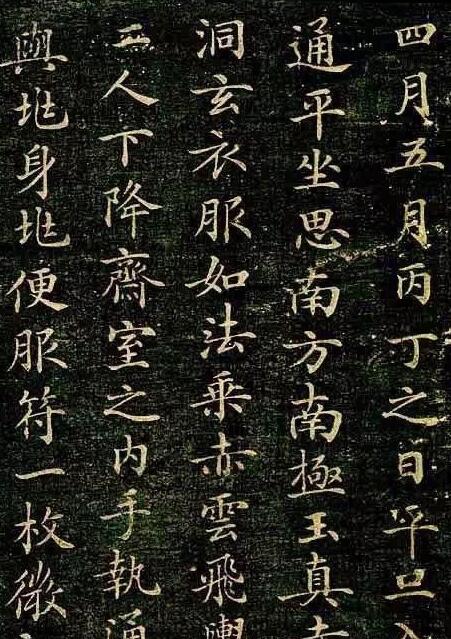 四月五月丙丁之日平旦
通平坐思南方南極玉真
洞玄衣服如法乘赤雲飛
二人下降齋室之内手執通
與兆身兆便服符一枚微